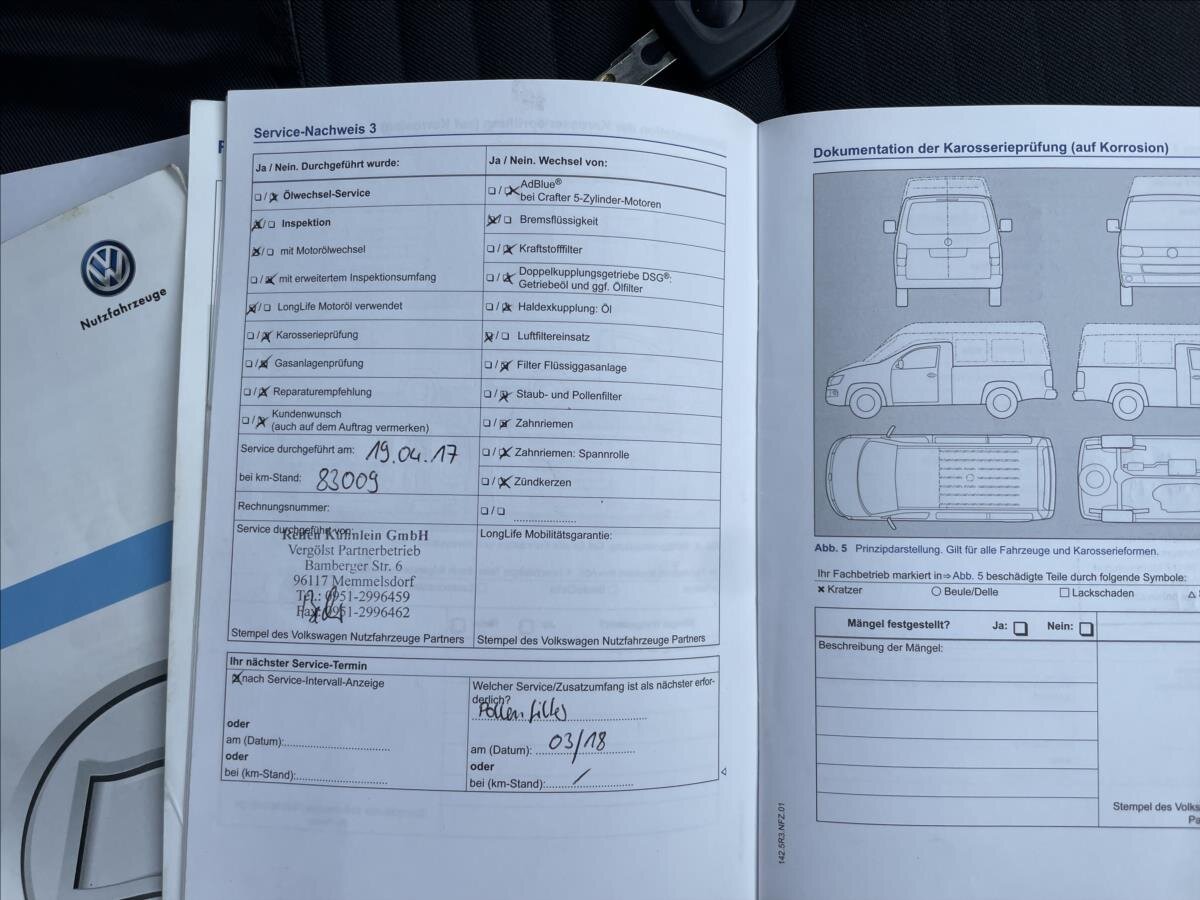 Nutzfahrzeuge
Service-Nachweis 3
Ja / Nein. Durchgeführt wurde:
Ölwechsel-Service
Inspektion
mit Motorölwechsel
mit erweitertem Inspektionsumfang
LongLife Motoröl verwendet
Karosserieprüfung
Gasanlagenprüfung
Reparaturempfehlung
Kundenwunsch
(auch auf dem Auftrag vermerken)
Service durchgeführt am: 19.04.17
bei km-Stand: 83009
Rechnungsnummer:
Service durchgeführt von:
Reifen Kümlein GmbH
Vergölst Partnerbetrieb
Bamberger Str. 6
96117 Memmelsdorf
Tel.: 0951-2996459
Fax: 0951-2996462
Stempel des Volkswagen Nutzfahrzeuge Partners
Ja / Nein. Wechsel von:
AdBlue®
bei Crafter 5-Zylinder-Motoren
Bremsflüssigkeit
Kraftstofffilter
Doppelkupplungsgetriebe DSG®:
Getriebeöl und ggf. Ölfilter
Haldexkupplung: Öl
Luftfiltereinsatz
Filter Flüssiggasanlage
Staub- und Pollenfilter
Zahnriemen
Zahnriemen: Spannrolle
Zündkerzen
LongLife Mobilitätsgarantie:
Stempel des Volkswagen Nutzfahrzeuge Partners
Ihr nächster Service-Termin
nach Service-Intervall-Anzeige
oder
am (Datum):
oder
bei (km-Stand):
Welcher Service/Zusatzumfang ist als nächster erfor-
derlich?
Pollenfilter
am (Datum): 03/18
oder
bei (km-Stand): /
Dokumentation der Karosserieprüfung (auf Korrosion)
Abb. 5 Prinzipdarstellung. Gilt für alle Fahrzeuge und Karosserieformen.
Ihr Fachbetrieb markiert in⇒Abb. 5 beschädigte Teile durch folgende Symbole:
Kratzer
Beule/Delle
Lackschaden
Mängel festgestellt? Ja: Nein:
Beschreibung der Mängel:
Stempel des Volks
Pa
142.5R3.NFZ.01